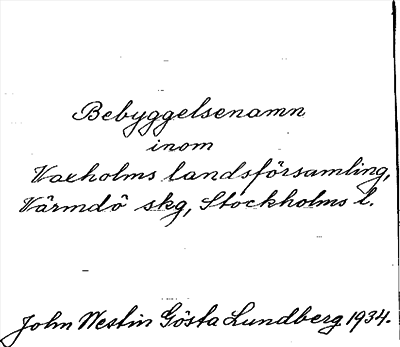 Bebyggelsenamn
inom
Vaxholms landsförsamling,
Värmdö skg, Stockholms l.
John Westin Gösta Lundberg 1934.